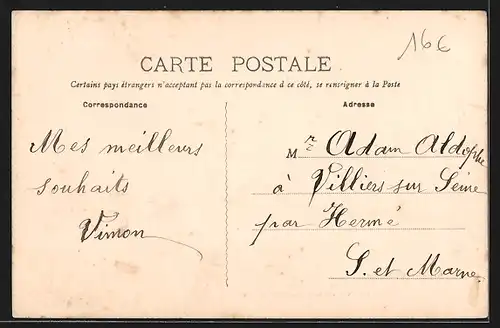 16€
CARTE POSTALE
Certains pays étrangers n'acceptant pas la correspondance à ce côté, se renseigner à la Poste
Correspondance
Adresse
Mes meilleurs
souhaits
Vimon
Mr Adam Aldophe
à Villiers sur Seine
par Hermé
S. et Marne